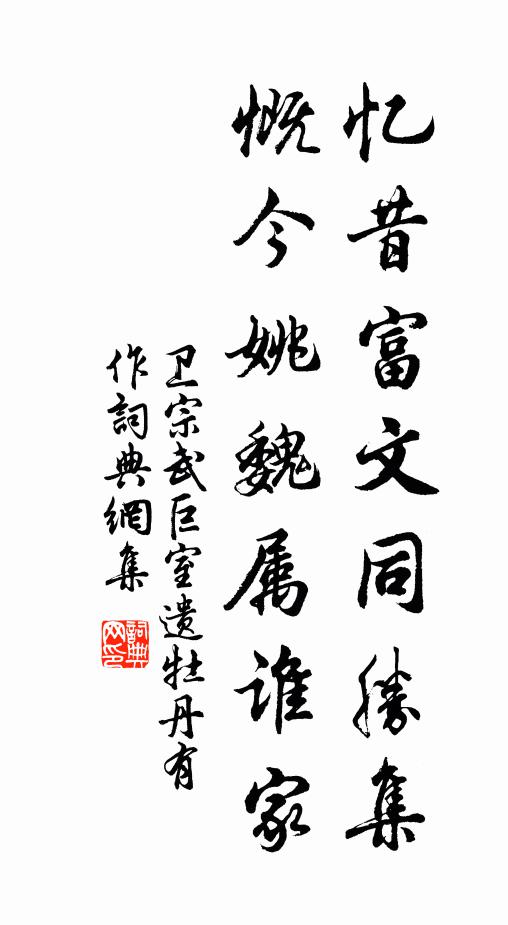 忆昔富文同勝集
慨今姚魏属谁家
卫宗武巨室遗牡丹有
作詞典網集
詞典
网印